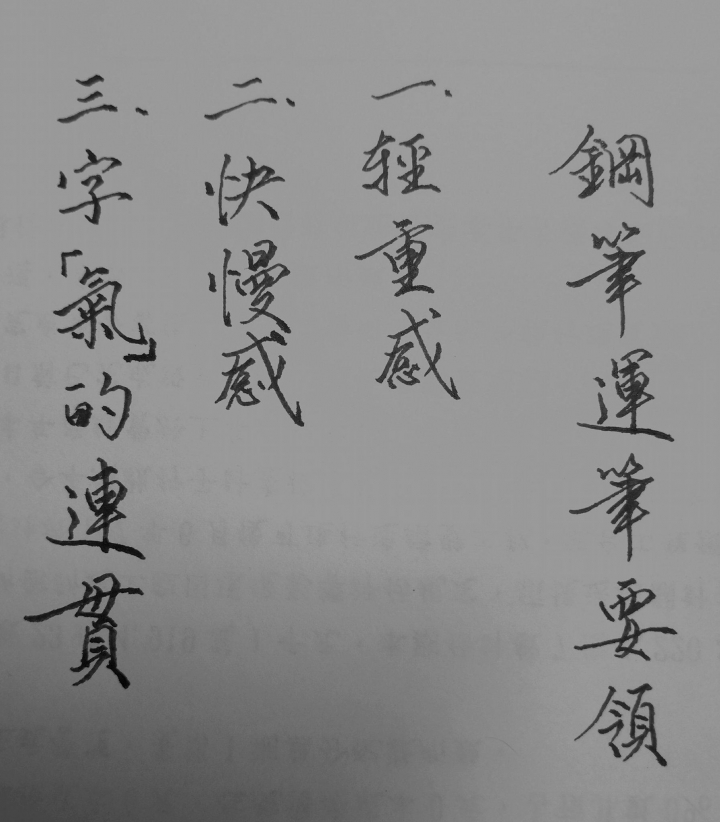 鋼筆運筆要領
一、輕重感
二、快慢感
三、字「氣」的連貫